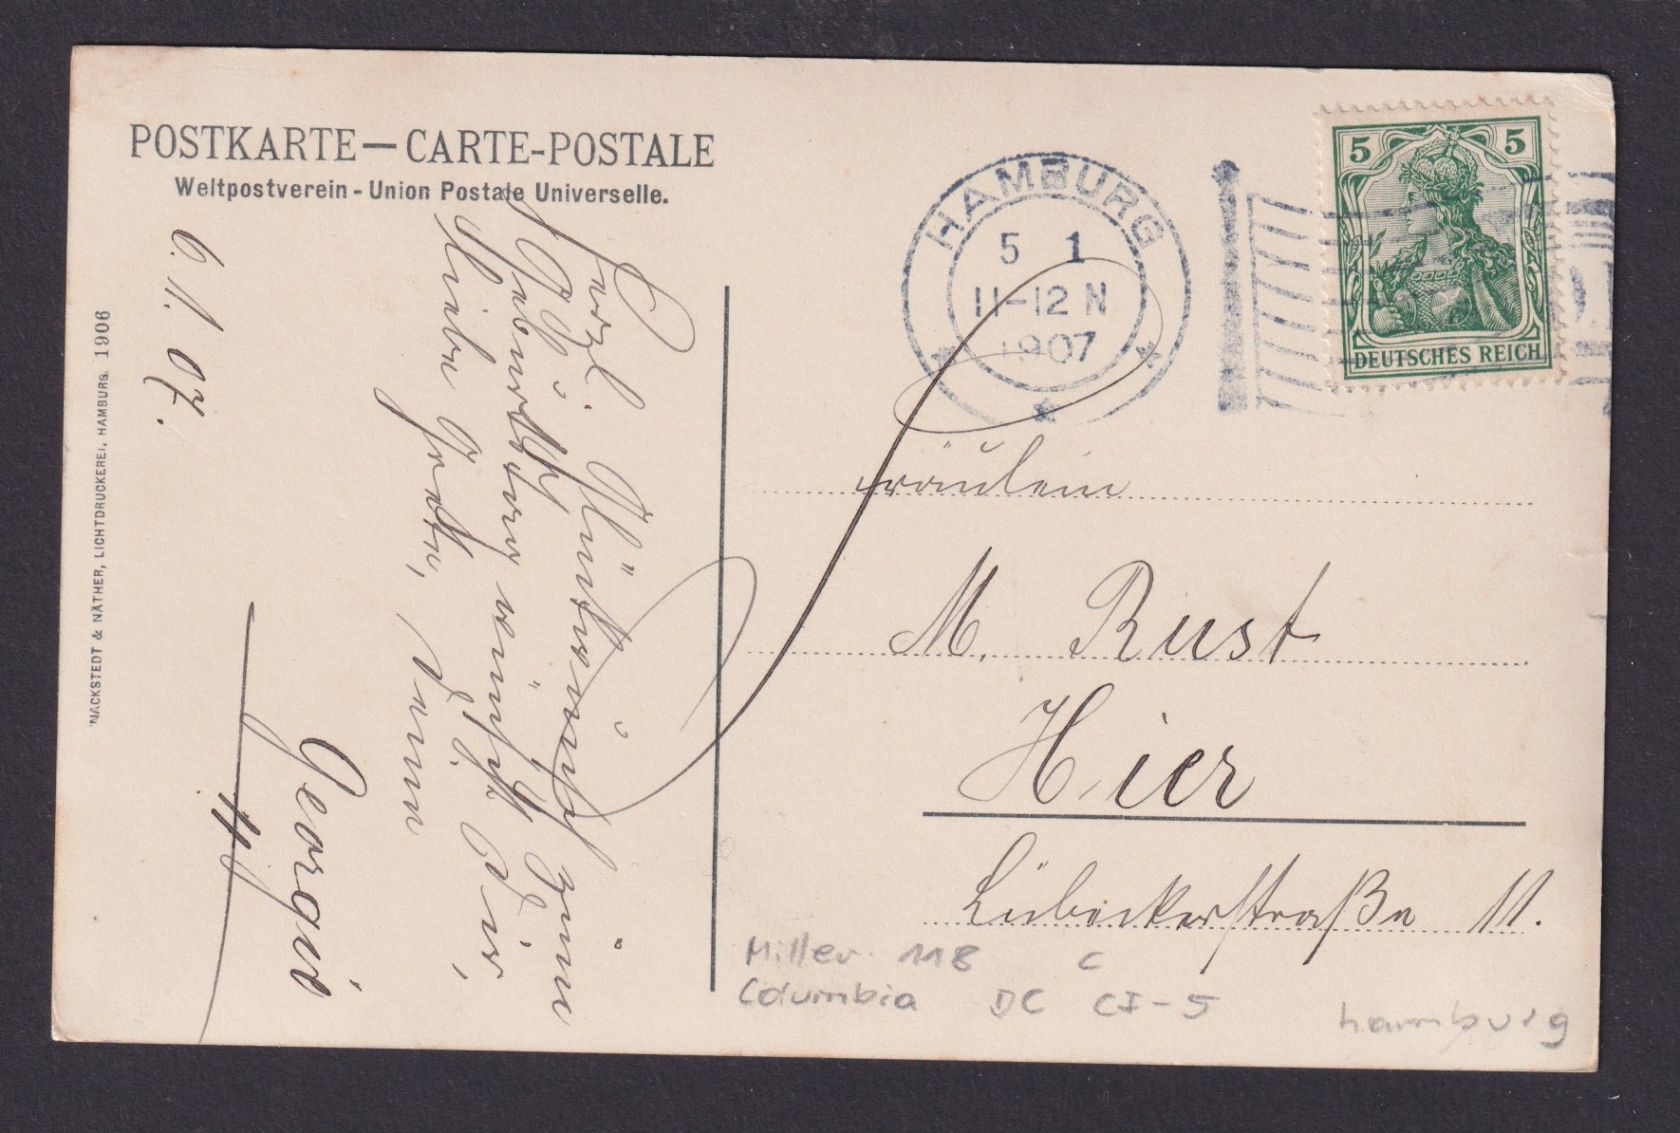 POSTKARTE — CARTE-POSTALE
Weltpostverein - Union Postale Universelle.
NACKSTEDT & NÄTHER, LICHTDRUCKEREI, HAMBURG. 1906
6.1.07.
Herzl. Glückwünsche zum
Geburtstag wünscht Dir,
liebe Grete, Deine
Georgis
HAMBURG
5 1
11-12 N
1907
5 5
DEUTSCHES REICH
Fräulein
M. Rust
Hier
Lübeckerstraße 11.
Miller 118 C
Columbia DC CI-5
hamburg